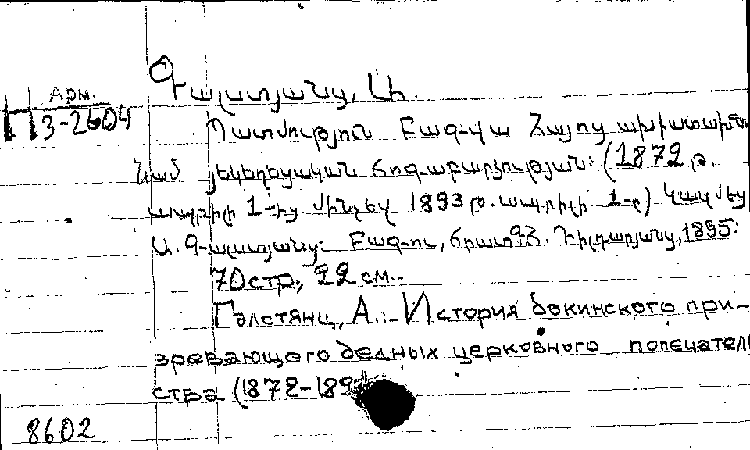 Арм.
П 3-2604
Գալստյանց, Ա.
Պատմություն Բագ-վա Հայոց
նամ եկեղեցական հոգաբարձության: (1872 թ.
ապրիլի 1-ից մինչեվ 1893 թ. ապրիլի 1-ը) Կազմեց
Ա. Գալստյանց: Բագ-ու, 1895:
70стр., 22 см.
Галстянц, А. История бакинского при-
зревающего бедных церковного попечатель
ства (1872-189
8602